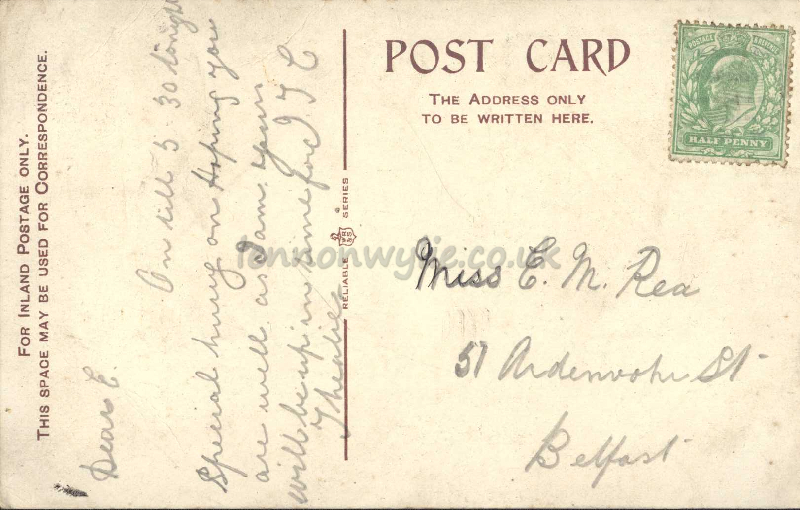 FOR INLAND POSTAGE ONLY.
THIS SPACE MAY BE USED FOR CORRESPONDENCE.
Dear E.
On till 5-30 tonight
Special hurry on Hoping you
are well as I am. Yours
will be up in time for J. T. C
RELIABLE SERIES
POST CARD
THE ADDRESS ONLY
TO BE WRITTEN HERE.
POSTAGE REVENUE
HALF PENNY
lennonwylie.co.uk
Miss E. M. Rea
51 Ardenvohr St
Belfast